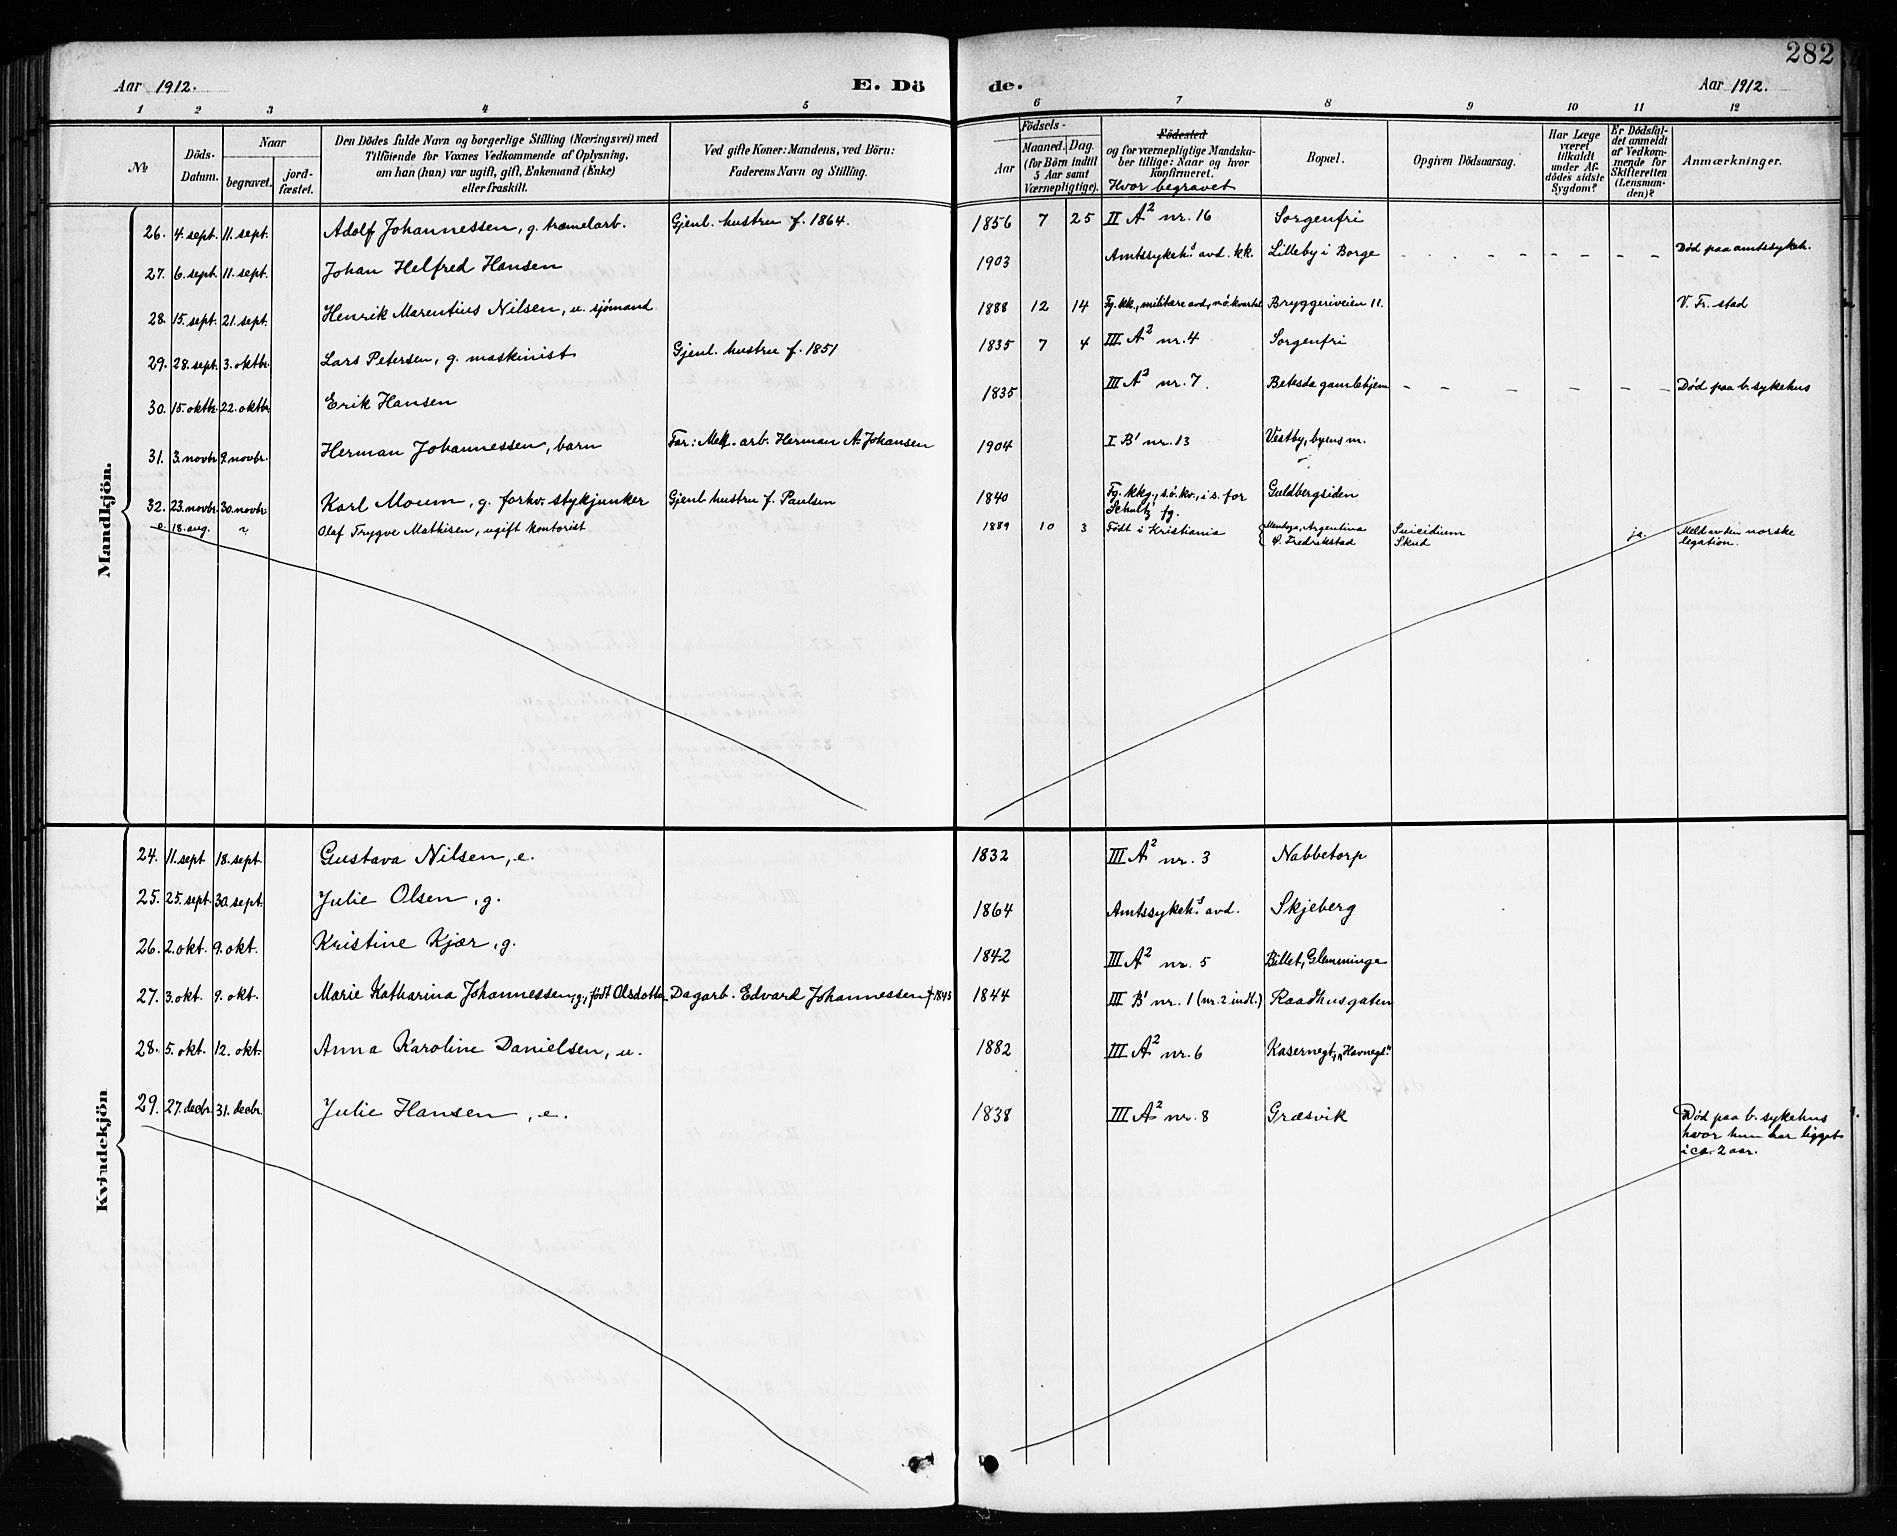 282
Aar 1912. E. Dö de. Aar 1912.
1 2 3 4 5 6 7 8 9 10 11 12
No
Döds-Datum.
Naar
begravet. jord-fæstet.
Den Dödes fulde Navn og borgerlige Stilling (Næringsvei) med
Tilföiende for Voxnes Vedkommende af Oplysning,
om han (hun) var ugift, gift, Enkemand (Enke)
eller fraskilt.
Ved gifte Koner: Mandens, ved Börn:
Faderens Navn og Stilling.
Födsels-
Aar
Maaned. Dag.
(for Börn indtil
5 Aar samt
Værnepligtige).
Födested
og for værnepligtige Mandska-
ber tillige: Naar og hvor
konfirmeret.
Hvor begravet
Bopæl.
Opgiven Dödsaarsag.
Har Læge
været
tilkaldt
under Af-
dödes sidste
Sygdom?
Er Dödsfal-
det anmeldt
af Vedkom-
mende for
Skifteretten
(Lensman-
den)?
Anmærkninger.
Mandkjön.
26. 4. sept. 11. sept. Adolf Johannessen, g. træmelarb. Gjenl. hustru f. 1864. 1856 7 25 II A2 nr. 16 Sorgenfri
27. 6. sept. 11. sept. Johan Helfred Hansen 1903 Amtssykeh.s avd. kk. Lilleby i Borge Död paa amtssykeh.
28. 15. sept. 21. sept. Henrik Marentius Nilsen, u. sjömand 1888 12 14 Fg. kk., militære avd., n.ö. kvartal Bryggeriveien 11. V. Fr. stad
29. 28. sept. 3. oktbr. Lars Petersen, g. maskinist Gjenl. hustru f. 1851 1835 7 4 III A2 nr. 4 Sorgenfri
30. 15. oktbr. 22. oktbr. Erik Hansen 1835 III A2 nr. 7. Betesda gamlehjem Död paa b. sykehus
31. 3. novbr. 9. novbr. Herman Johannessen, barn Far: Mek. arb. Herman A. Johansen 1904 I B1 nr. 13 Vestby, byens m.
32. 23. novbr. 30. novbr. Karl Moum, g. forhv. stykjunker Gjenl. hustru f. Paulsen 1840 Fg. kkg., s.ö. kv., i s. for
Schultz fg. Guldbergsiden
18. aug. Olaf Trygve Mathisen, ugift kontorist 1889 10 3 Födt i Kristiania Mendoza, Argentina
Fredrikstad Suicidium
Skud ja. Meld av den norske
legation.
Kvindekjön
24. 11. sept 18. sept. Gustava Nilsen, e. 1832 III A2 nr. 3 Nabbetorp
25. 25. sept. 30. sept. Julie Olsen, g. 1864 Amtssykeh.s avd. Skjeberg
26. 2. okt. 9. okt. Kristine Kjær, g. 1842 III A2 nr. 5 Billet, Glemminge
27. 3. okt. 9. okt. Marie Katharina Johannessen, g., født Olsdotter Dagarb. Edvard Johannessen f 1845 1844 III B1 nr. 1 (nr. 2 indl.) Raadhusgaten
28. 5. okt. 12. okt. Anna Karoline Danielsen, u. 1882 III A2 nr. 6 Kasernegt., "Havnegt."
29. 27. decbr. 31. decbr. Julie Hansen, e. 1838 III A2 nr. 8 Græsvik Död paa b. sykehus
hvor hun har ligget
i ca. 2 aar.